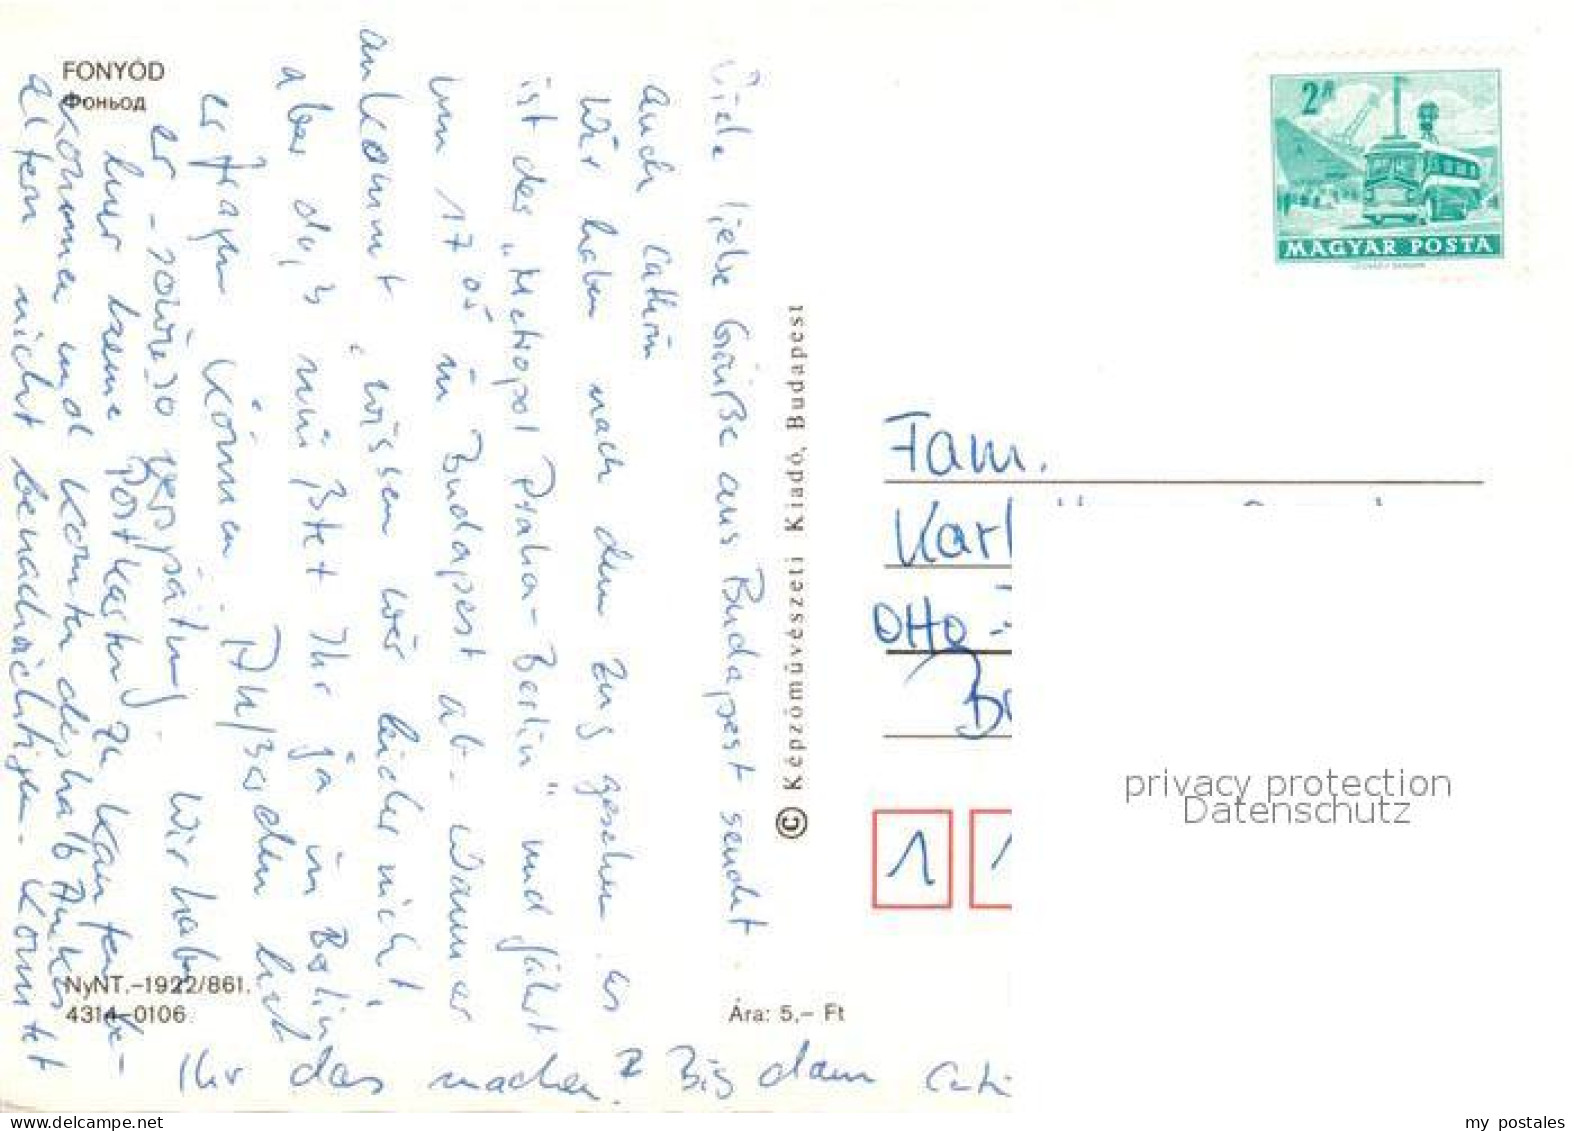 FONYÓD
Фоньод
2 Ft
MAGYAR POSTA
Viele liebe Grüße aus Budapest sendet
auch Cathrin
Wir haben nach dem Zug gesehen. es
ist der „Metropol Praha-Berlin" und fährt
um 17⁰⁵ in Budapest ab. Wann er
ankommt wissen wir leider nicht,
aber da,s müßtet Ihr ja in Berlin
erfragen können.
er - sowieso Verspätung. Wir haben
hier keine Postkarten zu kaufen be-
kommen und konnten deshalb
eltern nicht benachrichtigen. Könntet
Ihr das machen? Bis dann
© Képzőművészeti Kiadó, Budapest
Fam.
Karl
Otto-
1
NyNT.-1922/861.
4314-0106.
Ára: 5,- Ft
privacy protection
Datenschutz
my postales